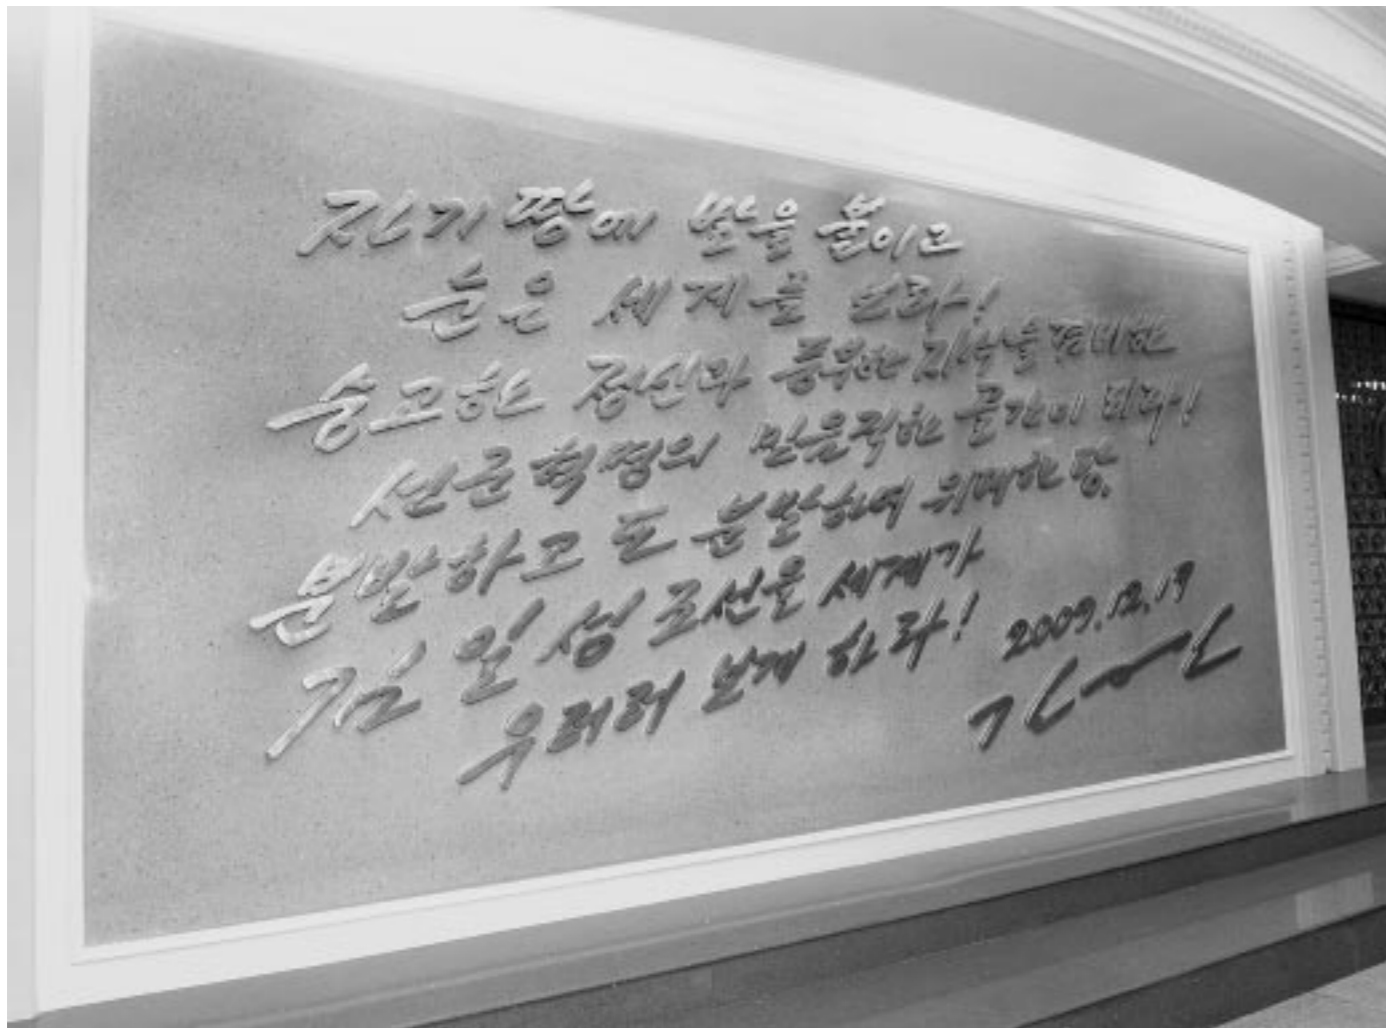 자기 땅에 발을 붙이고
눈은 세계를 보라!
숭고한 정신과 풍부한 지식을 겸비한
선군혁명의 믿음직한 골간이 되라!
분발하고 또 분발하여 위대한 당,
김일성조선을 세계가
우러러 보게 하라!
2009.12.17